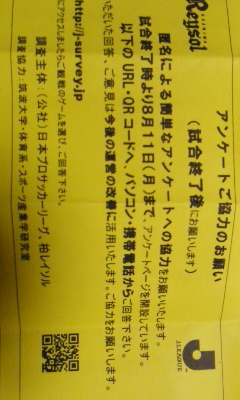 KASHIWA
Reysol
アンケートご協力のお願い
(試合終了後にお願いします)
匿名による簡単なアンケートへの協力をお願いいたします。
試合終了時より8月11日(月)まで、アンケートページを開設しています。
以下のURL・QRコードへ、パソコン・携帯電話からご回答下さい。
いただいた回答、ご意見は今後の運営の改善に活用いたします。ご協力をお願いします。
http://j-survey.jp
にアクセスしましたらご観戦のゲームを選び、ご回答下さい。
調査主体:(公社)日本プロサッカーリーグ、柏レイソル
調査協力:筑波大学・体育系・スポーツ産業学研究室
J.LEAGUE